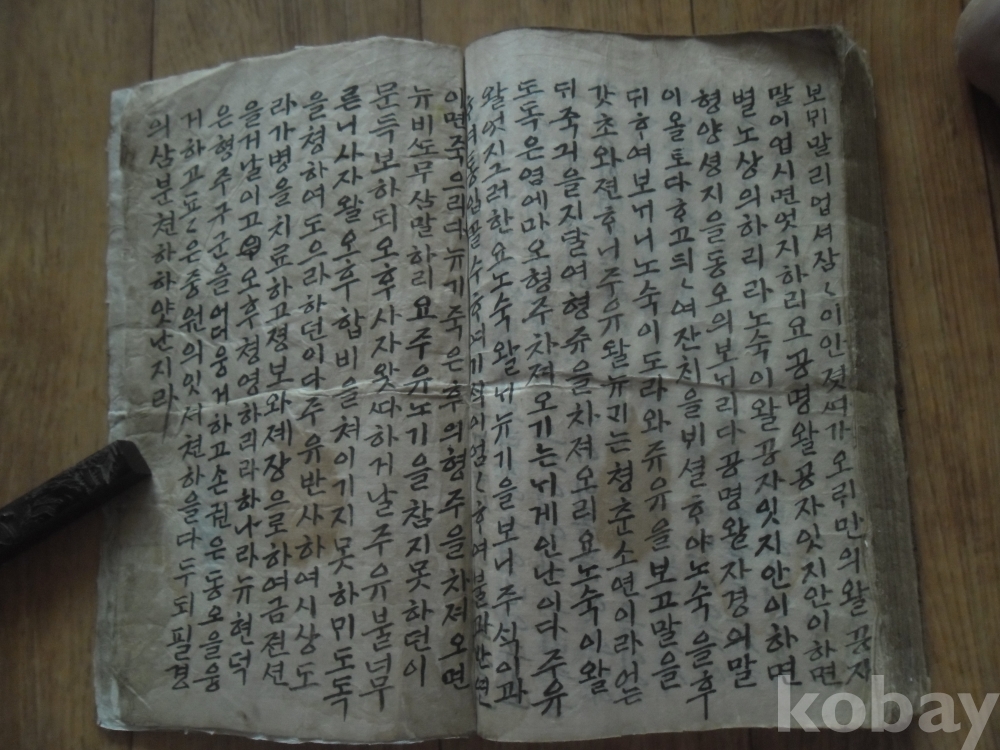 보미말리업셔잠〻이안젓셔가오뤼만의왈 공자
말이업시면엇지하리요공명왈공자잇지안이하면
별노상의하리라노숙이왈공자잇지안이하면
형양셩지을동오의보뉘리다공명왈자경의말
이올토다ᄒᆞ고듸〻여잔치을ᄇᆡ셜ᄒᆞ야노숙을후
뒤ᄒᆞ여보뉘니노숙이도라와쥬유을보고말을
갓초와젼ᄒᆞ니주유왈뉴긔는쳥춘소연이라언는
뒤쥭긔을지달여형쥬을차져오리요노숙이왈
도독은염예마오형주차져오기는뉘게인난이다주유
왈엇지그러한요노숙왈뉘뉴기을보니주식이과
이면죽으리다뉴기죽은후의형주을차져오면
뉴비도무삼말하리요주유노기을참지못하던이
문득보하되오후사자왓따하거날주유불너무
른니사자왈오후합비을쳐이기지못하미도독
을쳥하여도으라하던이다주유반사하여시상도
라가병을치료하고졍보와졔장으로하여금젼션
을거날이고오후쳥영하리라하니라뉴현덕
은형주구군을어더웅거하고손권은동오을웅
거하고됴〻은중원의잇셔쳔하을다두되필경
의삼분쳔하하얏난지라
kobay